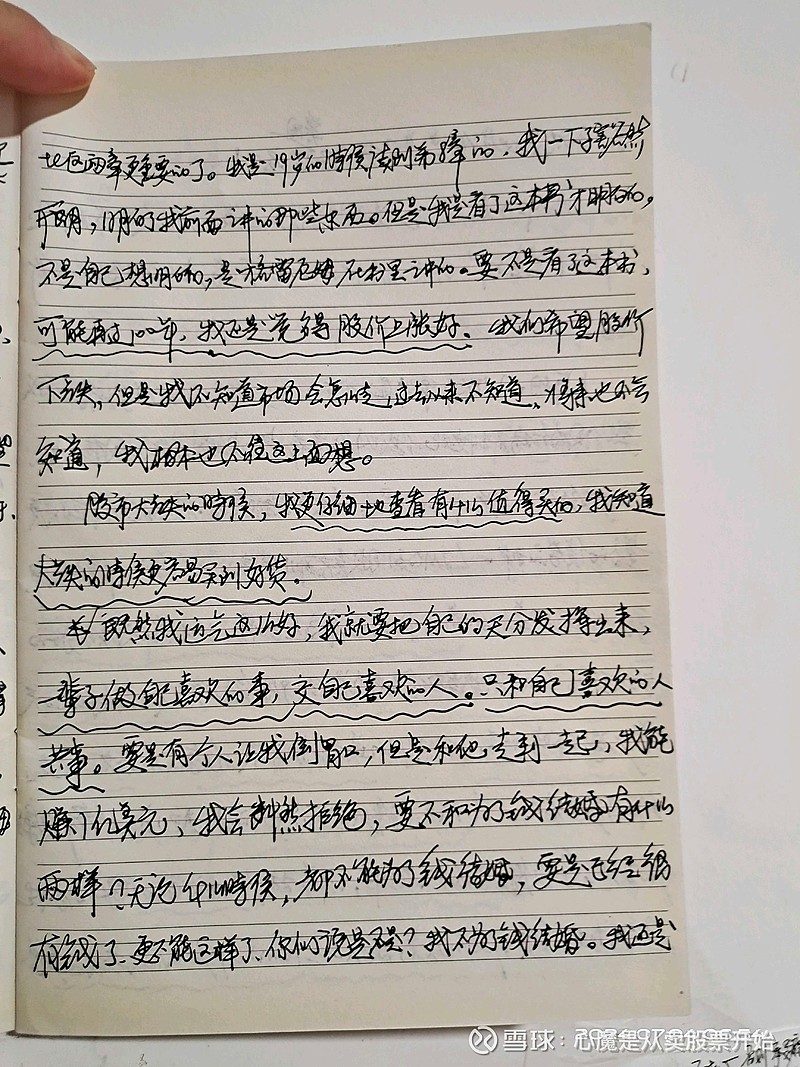 比这两章更重要的了。我是19岁的时候读到第8章的，我一下子豁然
开朗，明白了我前面讲的那些东西。但是我是看了这本书才明白的，
不是自己想明白的，是格雷厄姆在书里讲的。要不是看了这本书，
可能再过100年，我还是觉得股价上涨好。我们希望股价
下跌，但是我不知道市场会怎么走，过去从来不知道，将来也不会
知道，我根本也不往这上面想。
股市大跌的时候，我更仔细地查看有什么值得买的，我知道
大跌的时候更容易买到好货。
既然我运气这么好，我就要把自己的天分发挥出来，
一辈子做自己喜欢的事，交自己喜欢的人。只和自己喜欢的人
共事。要是有个人让我倒胃口，但是和他走到一起，我能
赚1亿美元，我会断然拒绝，要不和为了钱结婚有什么
两样？无论什么时候，都不能为了钱结婚，要是已经很
有钱了、更不能这样了、你们说是不是？我不为了钱结婚。我还是
雪球：心魔是从卖股票开始